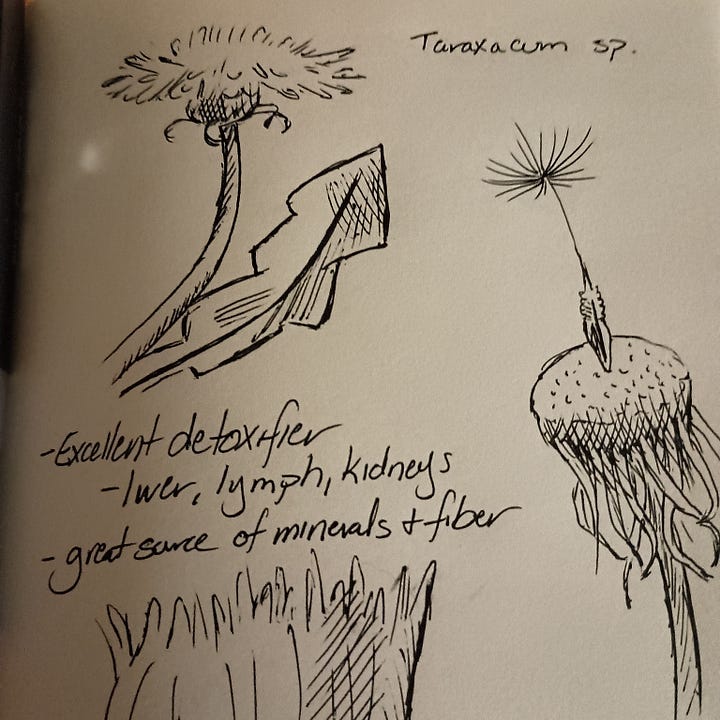 Taraxacum sp.
-Excellent detoxifier
-liver, lymph, kidneys
-great source of minerals + fiber